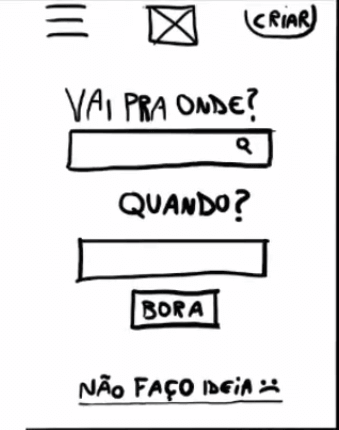 CRIAR
VAI PRA ONDE?
QUANDO?
BORA
NÃO FAÇO IDEIA :(